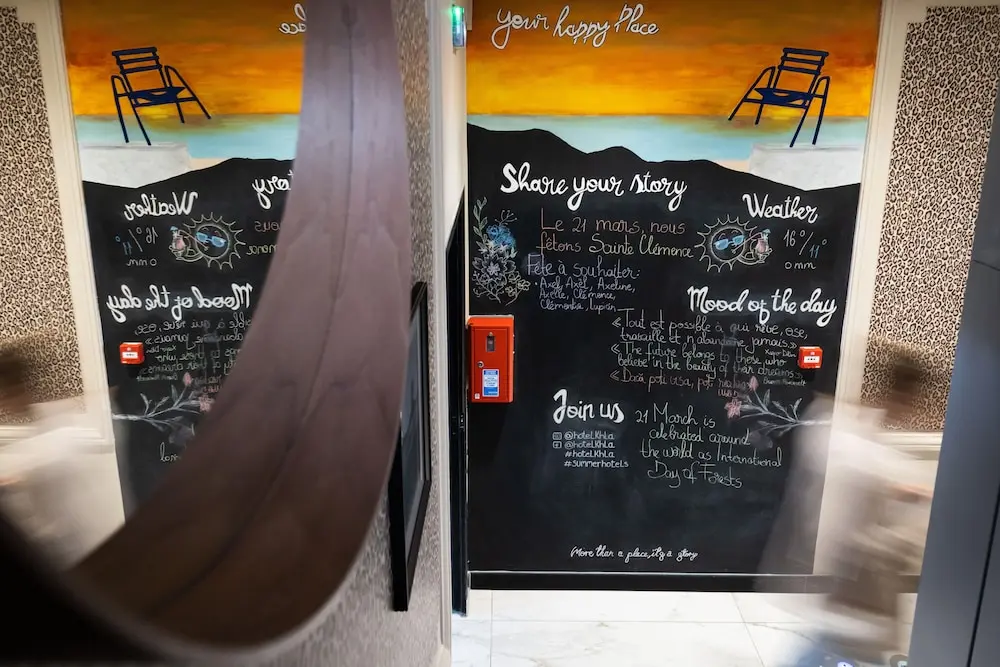 your happy Place
Share your story
Le 21 mars, nous
fêtons Sainte Clémence
Fête à souhaiter:
• Axel, Axel, Axeline,
Axelle, Clémence,
Clémentia, Lupicin
Weather
16°/11°
0 mm
Mood of the day
« Tout est possible à qui rêve, ose,
travaille et n'abandonne jamais »
Xavier Dolan
« The future belongs to those, who
believe in the beauty of their dreams »
Eleanor Roosevelt
« Dacă poți visa, poți
Join us
@hotelKhla
@hotelKhla
#hotelKhla
#summerhotels
21 March is
celebrated around
the world as International
Day of Forests
More than a place, it's a story